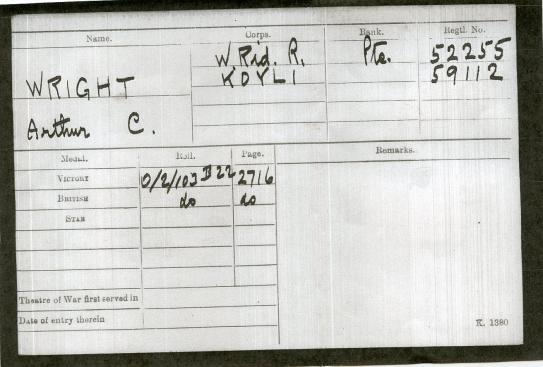 Name. Corps. Rank. Regtl. No.
W. Rid. R. Pte. 52255
WRIGHT KOYLI 59112
Arthur C.
Medal. Roll. Page. Remarks.
VICTORY O/2/103 B22 2716
BRITISH do do
STAR
Theatre of War first served in
Date of entry therein
K. 1380